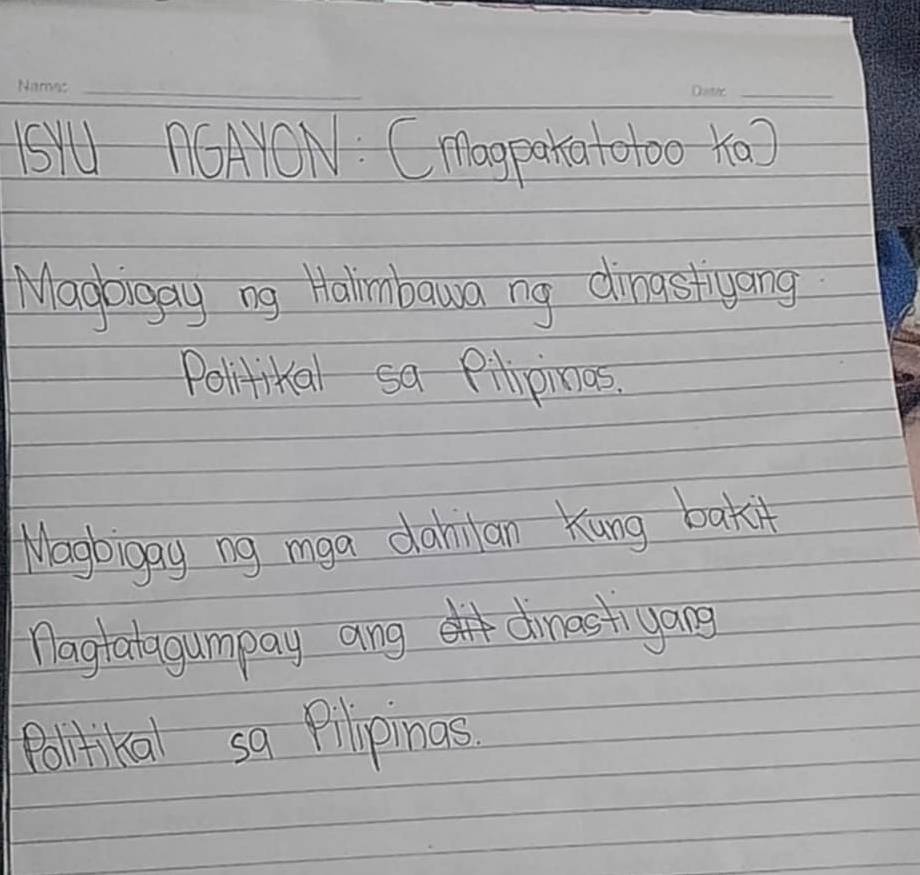 Name:
Date:
ISYU NGAYON: (Magpakatotoo ka)
Magbigay ng Halimbawa ng dinastiyang
Politikal sa Pilipinas.
Magbigay ng mga dahilan kung bakit
Nagtatagumpay ang dit dinastiyang
Politikal sa Pilipinas.